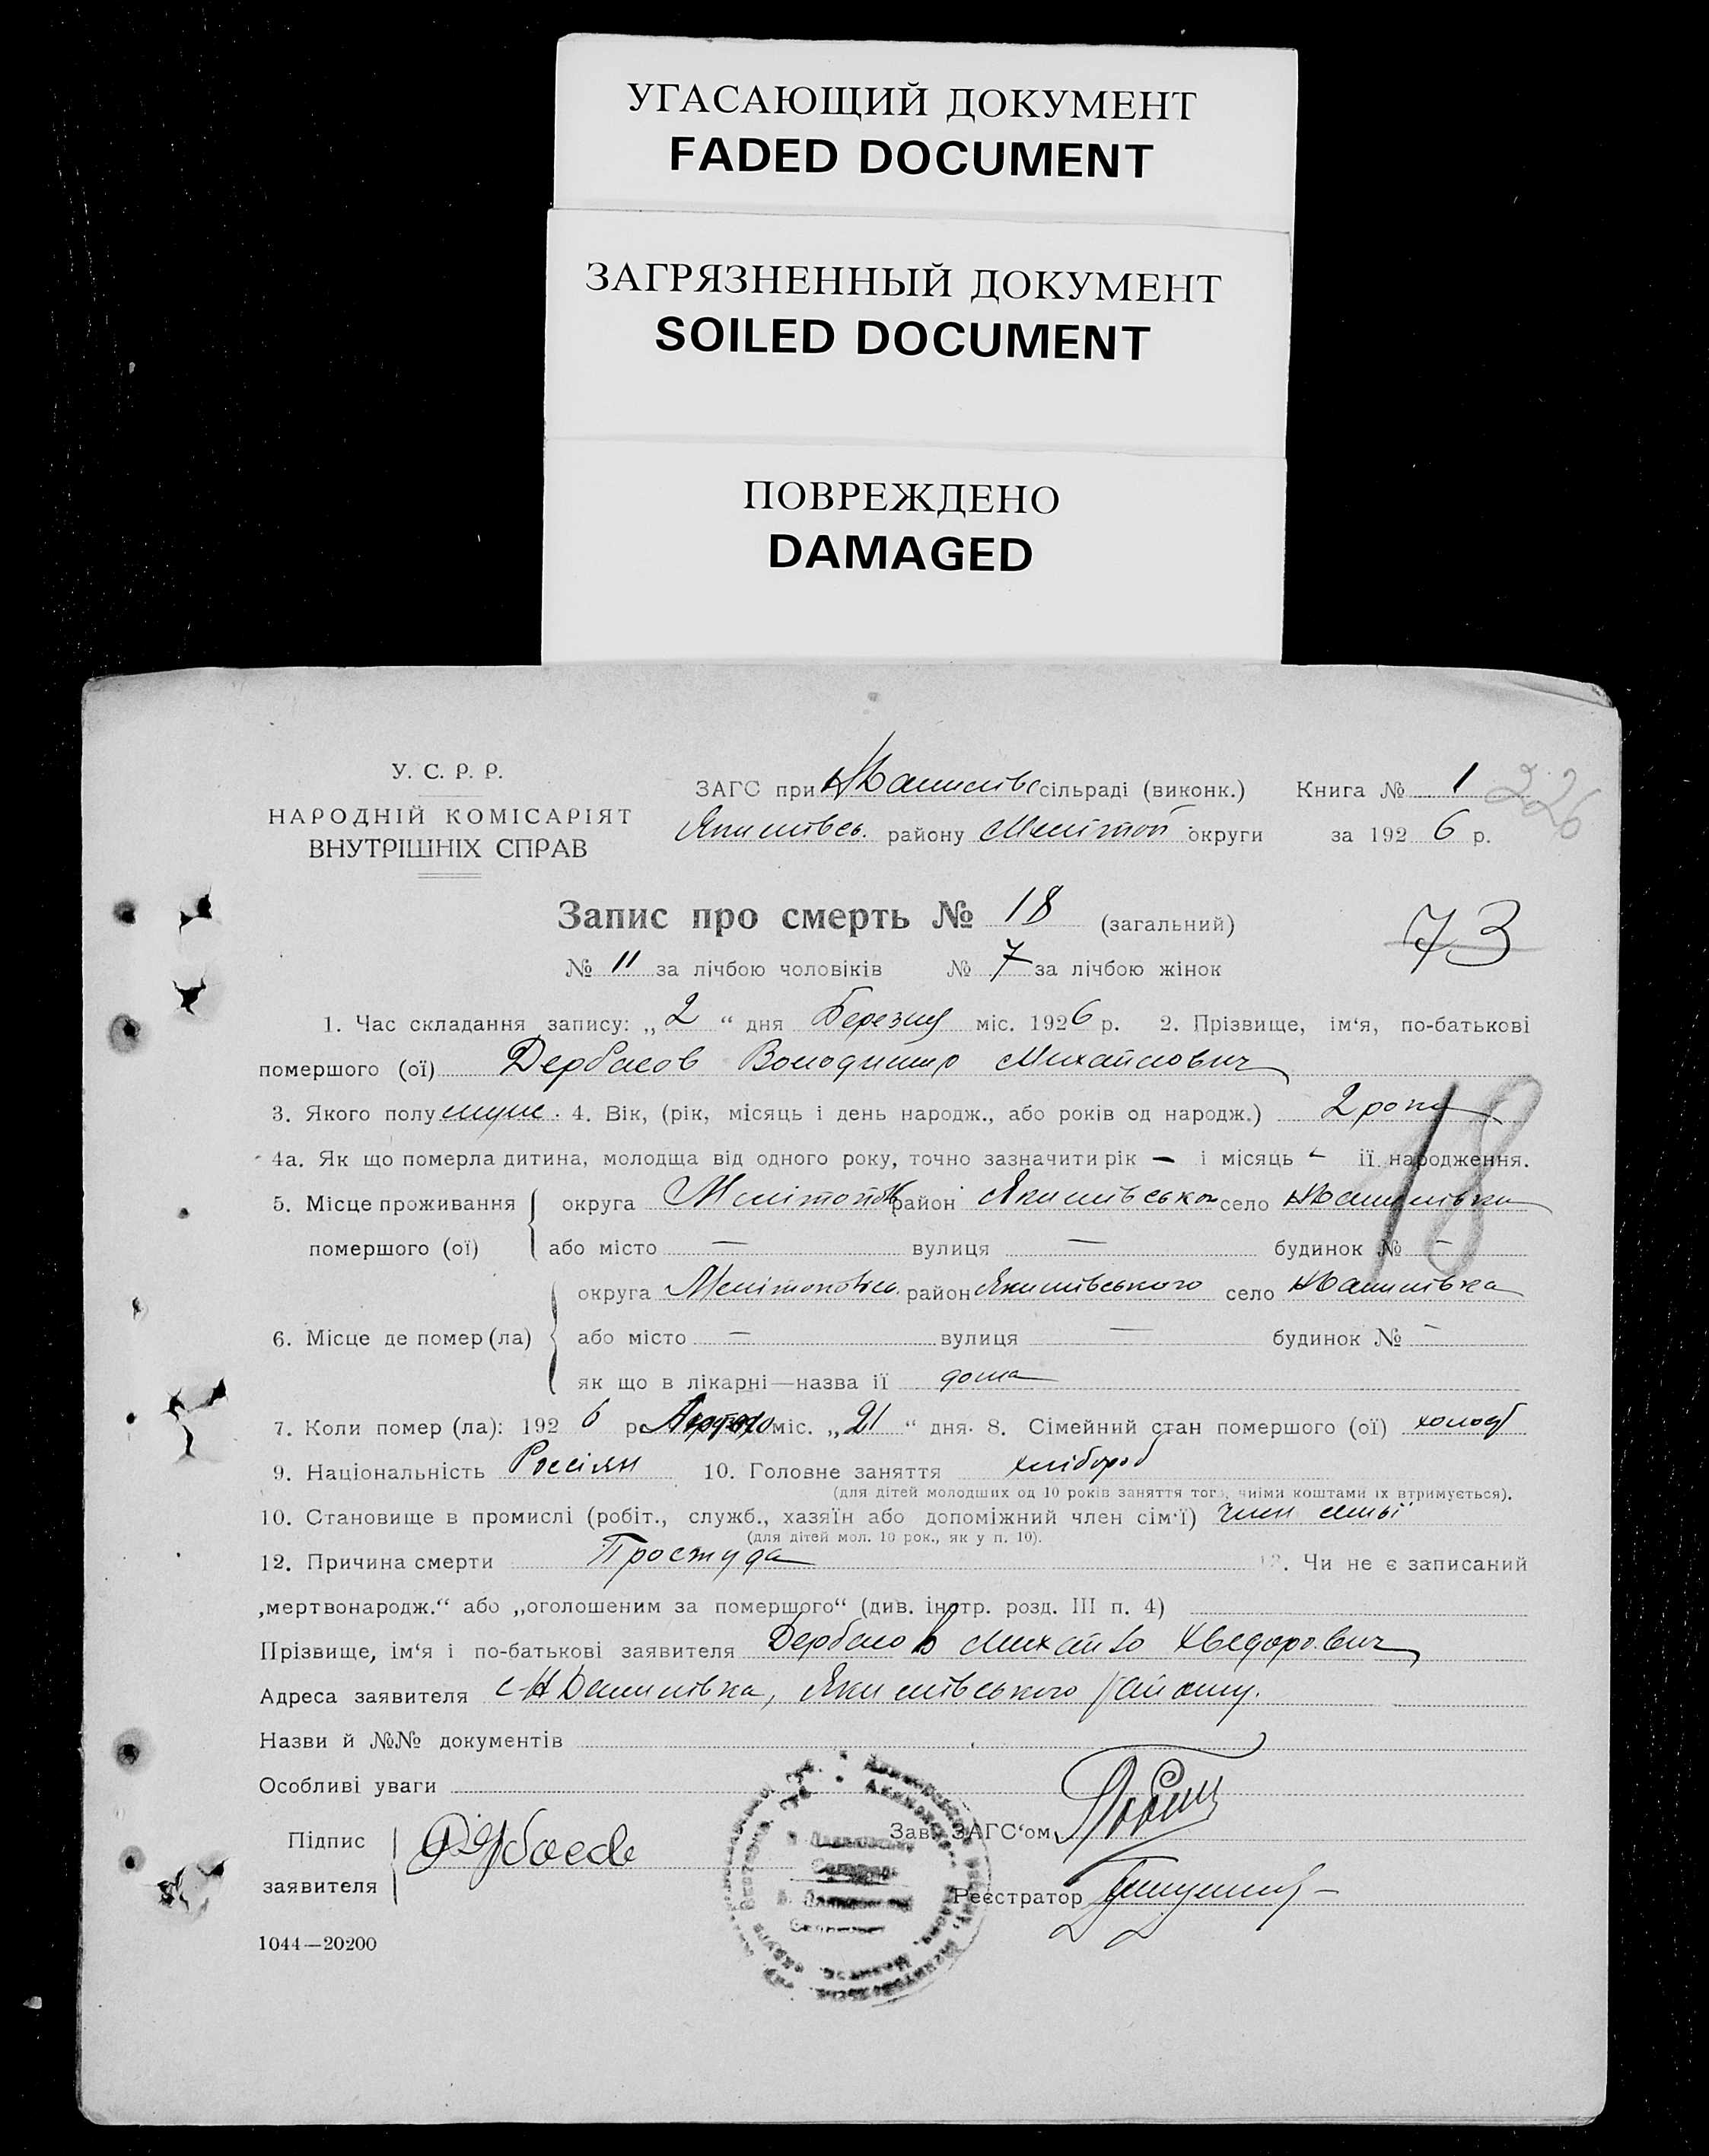 УГАСАЮЩИЙ ДОКУМЕНТ
FADED DOCUMENT
ЗАГРЯЗНЕННЫЙ ДОКУМЕНТ
SOILED DOCUMENT
ПОВРЕЖДЕНО
DAMAGED
У. С. Р. Р.
НАРОДНІЙ КОМІСАРІЯТ
ВНУТРІШНІХ СПРАВ
ЗАГС при сільраді (виконк.) Книга № 1 226
Якимівсь. району Меліто́п округи за 1926 р.
Запис про смерть № 18 (загальний) 73
№ 11 за лічбою чоловіків № 7 за лічбою жінок
1. Час складання запису: „2“ дня Березня міс. 1926 р. 2. Прізвище, ім‘я, по-батькові
помершого (ої) Дербасов Володимир Михайлович
3. Якого полу муж. 4. Вік, (рік, місяць і день народж., або років од народж.) 2 роки
4а. Як що померла дитина, молодща від одного року, точно зазначити рік — і місяць - ії народження.
18
5. Місце проживання округа район село
помершого (ої) або місто — вулиця — будинок № —
округа район Якимівського село Н Данилівка
6. Місце де помер (ла) або місто — вулиця — будинок № —
як що в лікарні—назва ії дома
7. Коли помер (ла): 1926 р. Лютого міс. „21“ дня. 8. Сімейний стан помершого (ої) холост
9. Національність Россіян 10. Головне заняття хлібороб
(для дітей молодших од 10 років заняття того, чиїми коштами їх втримується).
10. Становище в промислі (робіт., служб., хазяїн або допоміжний член сім‘ї) член семьї
(для дітей мол. 10 рок., як у п. 10).
12. Причина смерти Простуда 13. Чи не є записаний
„мертвонародж.“ або „оголошеним за помершого“ (див. інстр. розд. III п. 4)
Прізвище, ім‘я і по-батькові заявителя Дербасов Михайло Хведорович
Адреса заявителя с. Н Данилівка, Якимівського району.
Назви й №№ документів
Особливі уваги
Підпис
заявителя
Зав. ЗАГС‘ом
Реєстратор
1044—20200